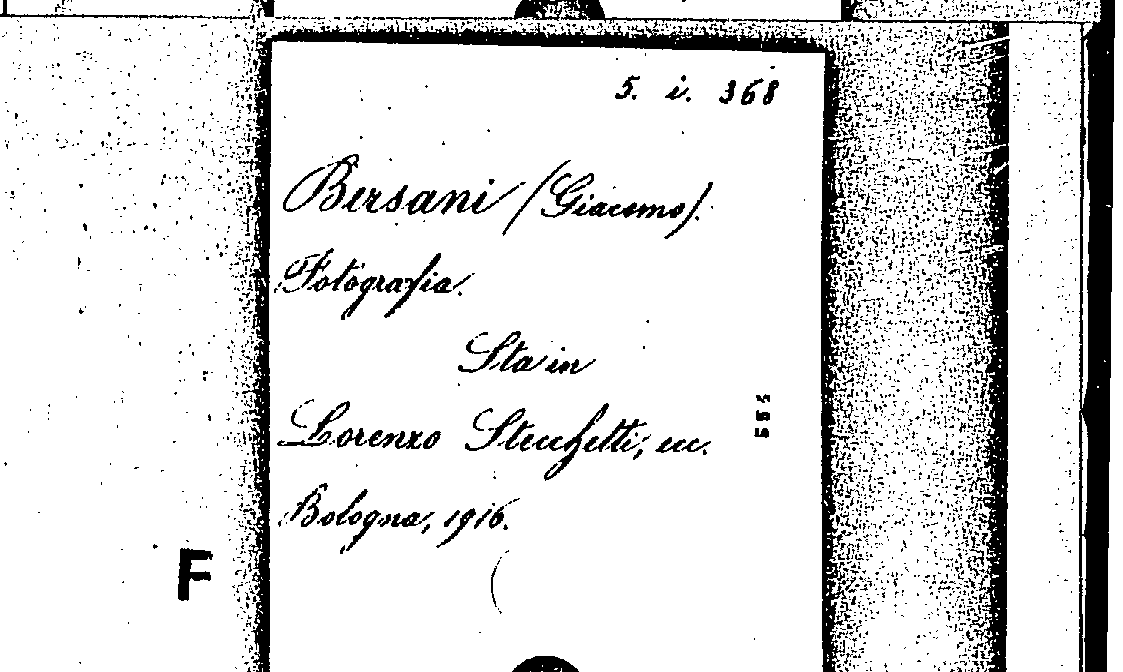 5. i. 368
Bersani (Giacomo).
Fotografia.
Sta in
Lorenzo Stecchetti, ecc.
Bologna, 1916.
F